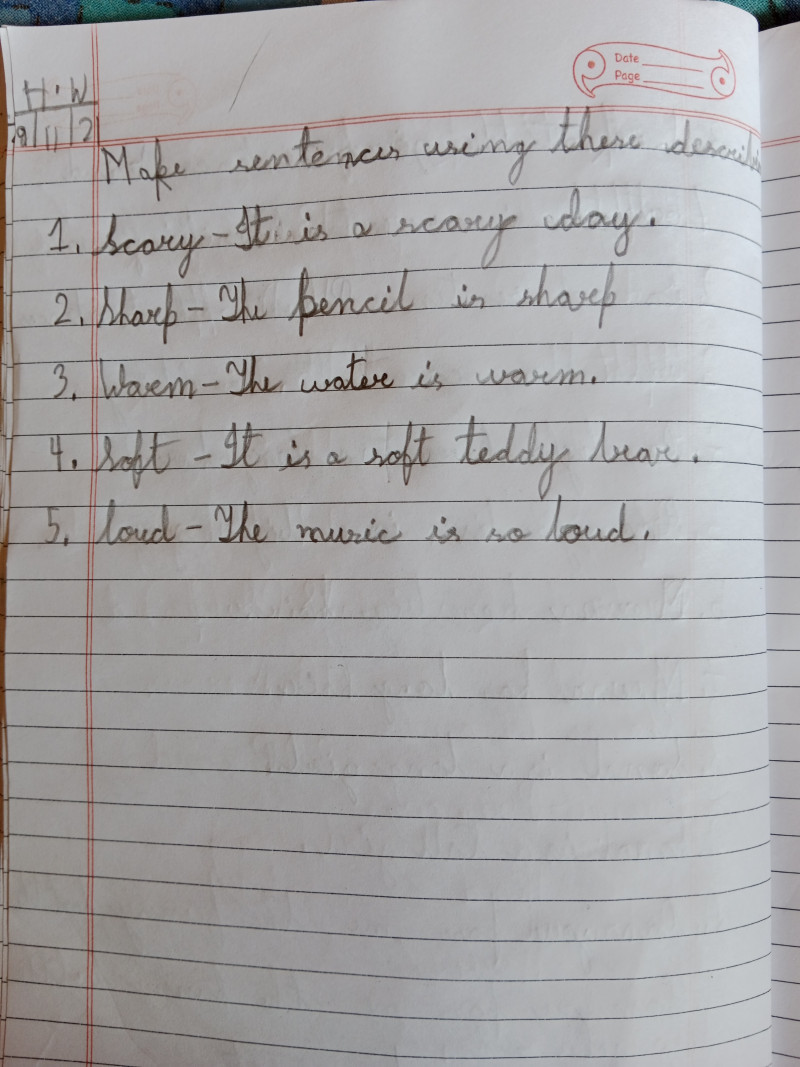 Date
Page
H.W
Make sentences using these
1. Scary - It is a scary day.
2. Sharp - The pencil is sharp
3. Warm - The water is warm.
4. Soft - It is a soft teddy bear.
5. loud - The music is so loud.